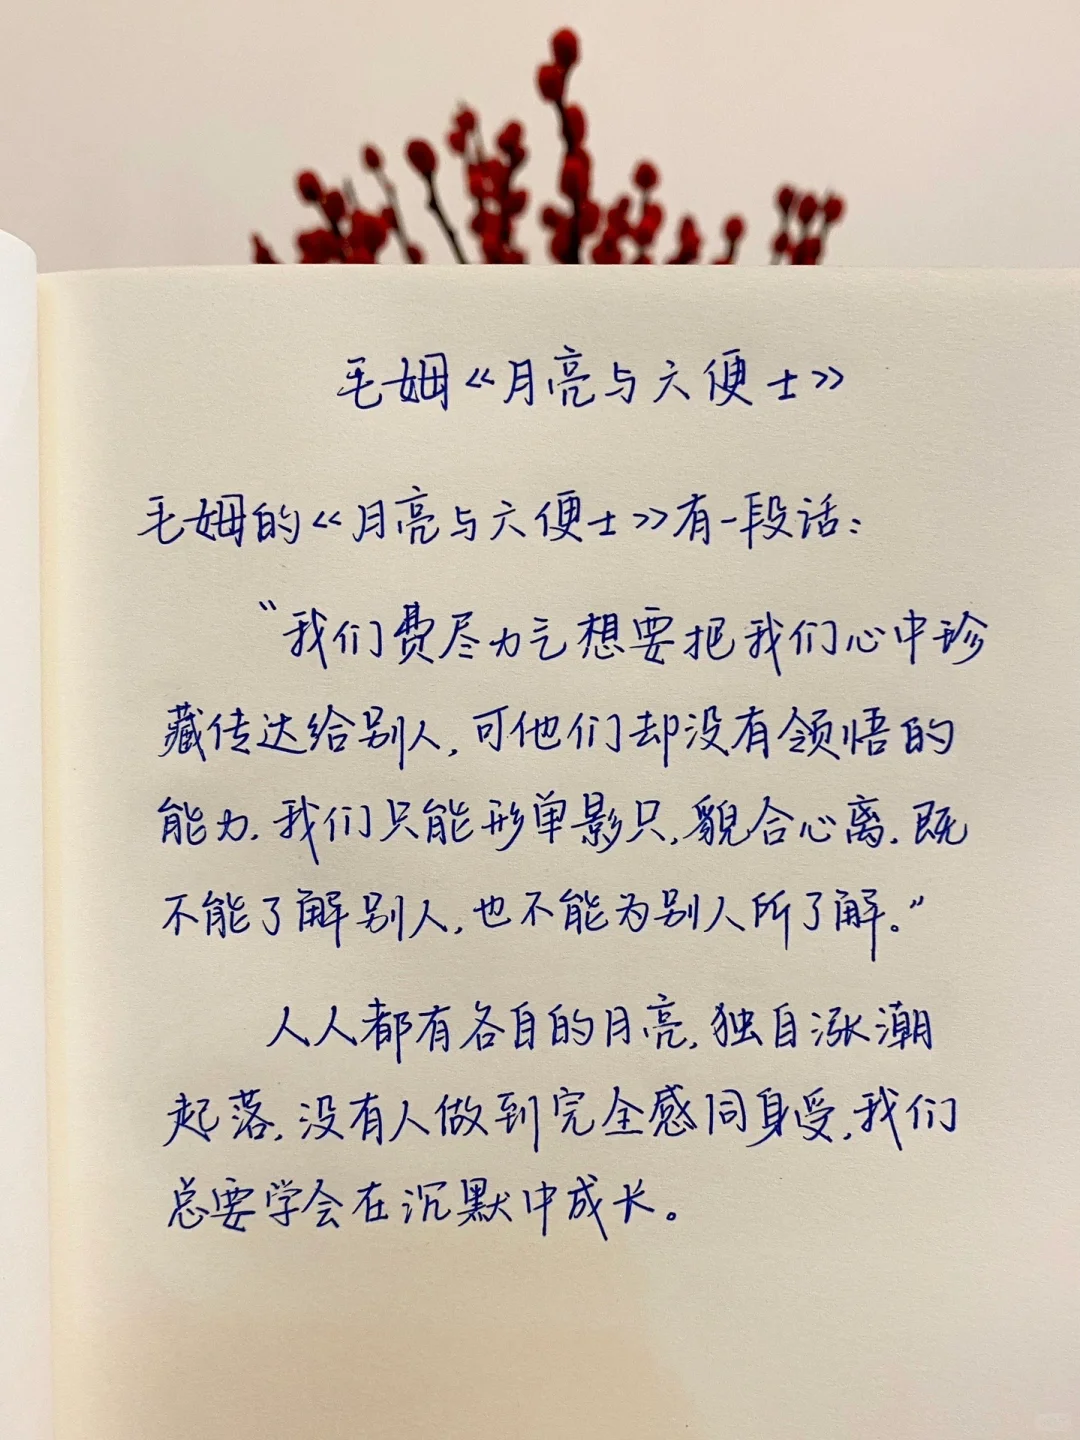 毛姆《月亮与六便士》
毛姆的《月亮与六便士》有一段话：
“我们费尽力气想要把我们心中珍
藏传达给别人，可他们却没有领悟的
能力，我们只能形单影只，貌合心离，既
不能了解别人，也不能为别人所了解。”
人人都有各自的月亮，独自涨潮
起落，没有人做到完全感同身受，我们
总要学会在沉默中成长。